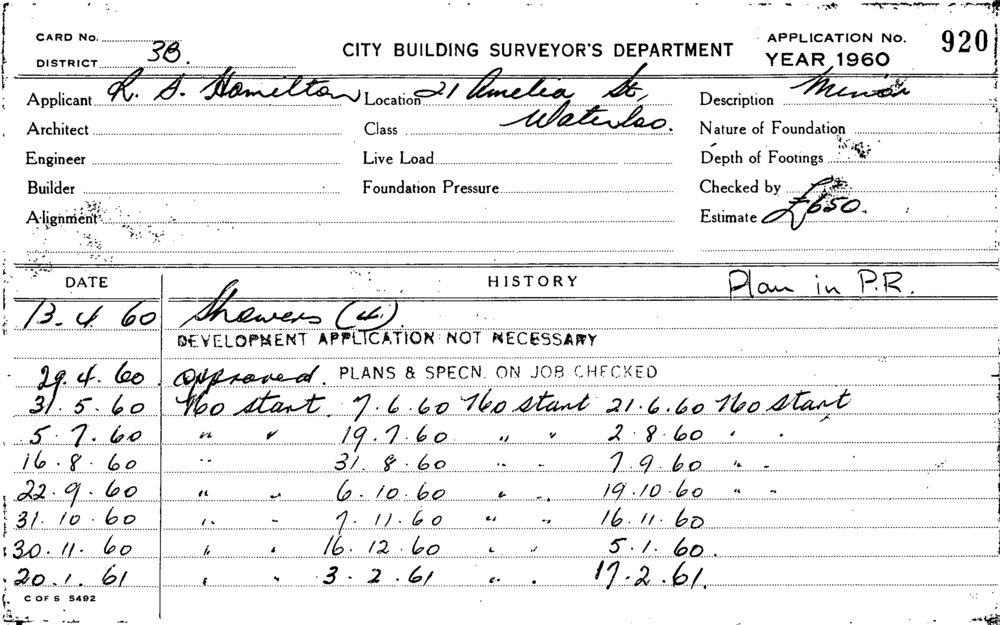 CARD No.
DISTRICT 3B.
CITY BUILDING SURVEYOR'S DEPARTMENT
APPLICATION No. 920
YEAR 1960
Applicant R. S. Hamilton Location 21 Amelia St, Description Minor
Waterloo.
Architect Class Nature of Foundation
Engineer Live Load Depth of Footings
Builder Foundation Pressure Checked by
Alignment Estimate £650.
DATE HISTORY Plan in P.R.
13. 4. 60 Showers (4).
DEVELOPMENT APPLICATION NOT NECESSARY
29. 4. 60 approved. PLANS & SPECN. ON JOB CHECKED
31. 5. 60 No start. 7. 6. 60 No start 21. 6. 60 No start
5. 7. 60 " " 19. 7. 60 " " 2. 8. 60 " "
16. 8. 60 " 31. 8. 60 " " 7. 9. 60 " "
22. 9. 60 " " 6. 10. 60 " " 19. 10. 60 " "
31. 10. 60 " " 7. 11. 60 " " 16. 11. 60
30. 11. 60 " " 16. 12. 60 " " 5. 1. 60.
20. 1. 61 " " 3. 2. 61 " " 17. 2. 61.
C OF S 5492